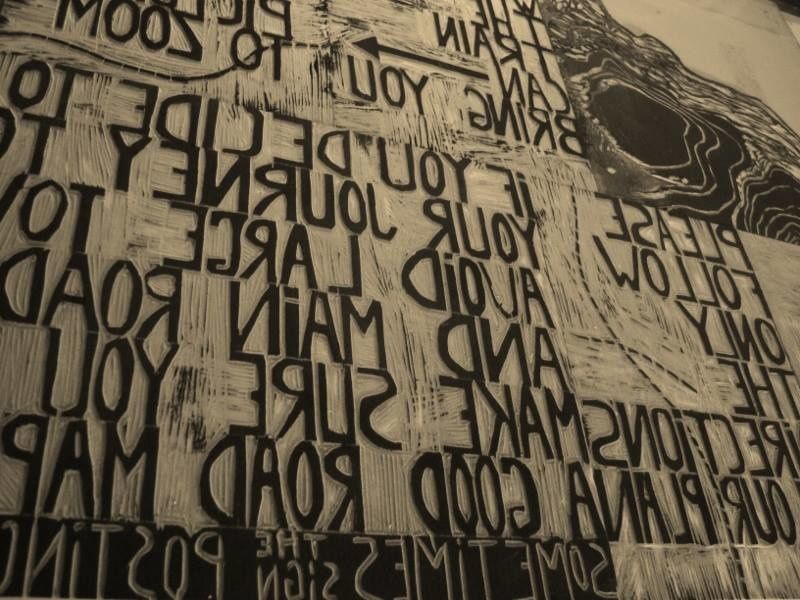 ZOOM
TRAIN
CAN
BRING YOU TO
IF YOU DECIDE TO
YOUR JOURNEY TO
AVOID LARGE TOW
AND MAIN ROAD
MAKE SURE YOU
A GOOD ROAD MAP
SOMETIMES THE SIGN POSTING
PLEASE
FOLLOW
ONLY
THE
IRECTIONS
OUR PLAN